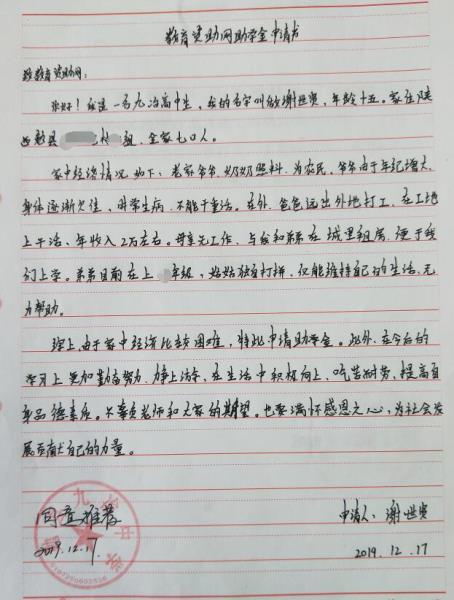 教育资助网助学金申请书
致教育资助网：
您好！我是一名九冶高中生，我的名字叫做谢世贤，年龄十五。家住陕
西勉县 组，全家七口人。
家中经济情况如下：老家爷爷、奶奶照料，为农民，爷爷由于年纪增大
身体逐渐欠佳，时常生病，不能干重活。在外，爸爸远出外地打工，在工地
上干活，年收入2万左右。母亲无工作，与我和弟弟在城里租房，便于我
们上学。弟弟目前在上 年级，姑姑独自打拼，仅能维持自己的生活，无
力帮助。
综上，由于家中经济比较困难，特此申请助学金。此外，在今后的
学习上更加勤奋努力，在生活中积极向上、吃苦耐劳，提高自
身品德素质。不辜负老师和大家的期望。也要满怀感恩之心，为社会发
展贡献自己的力量。
同意推荐
2019.12.17
申请人：谢世贤
2019.12.17